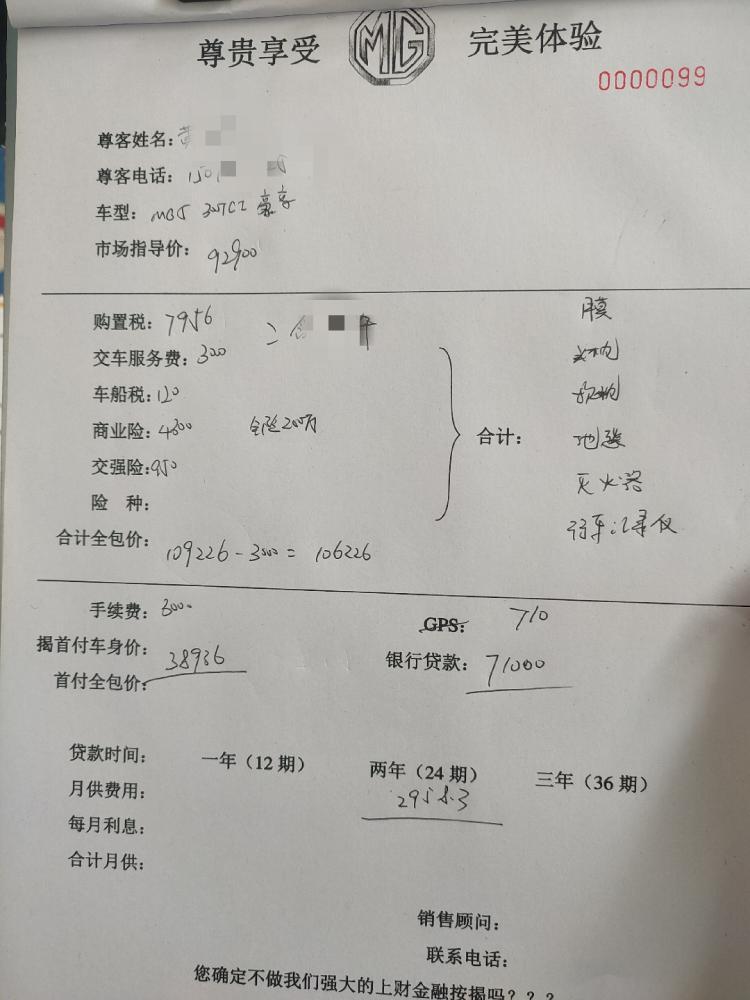 尊贵享受 MG 完美体验
0000099
尊客姓名:黄
尊客电话:150
车型:MG5 307CZ 豪享
市场指导价:92900
购置税:7956
交车服务费:300
车船税:120
商业险:4800 全险200万
交强险:950
险 种:
合计:
膜
地毯
灭火器
行车记录仪
合计全包价:109226-3000=106226
手续费:3000
GPS: 710
揭首付车身价:38936
银行贷款:71000
首付全包价:
贷款时间: 一年(12期) 两年(24期) 三年(36期)
月供费用: 2958.3
每月利息:
合计月供:
销售顾问:
联系电话:
您确定不做我们强大的上财金融按揭吗???